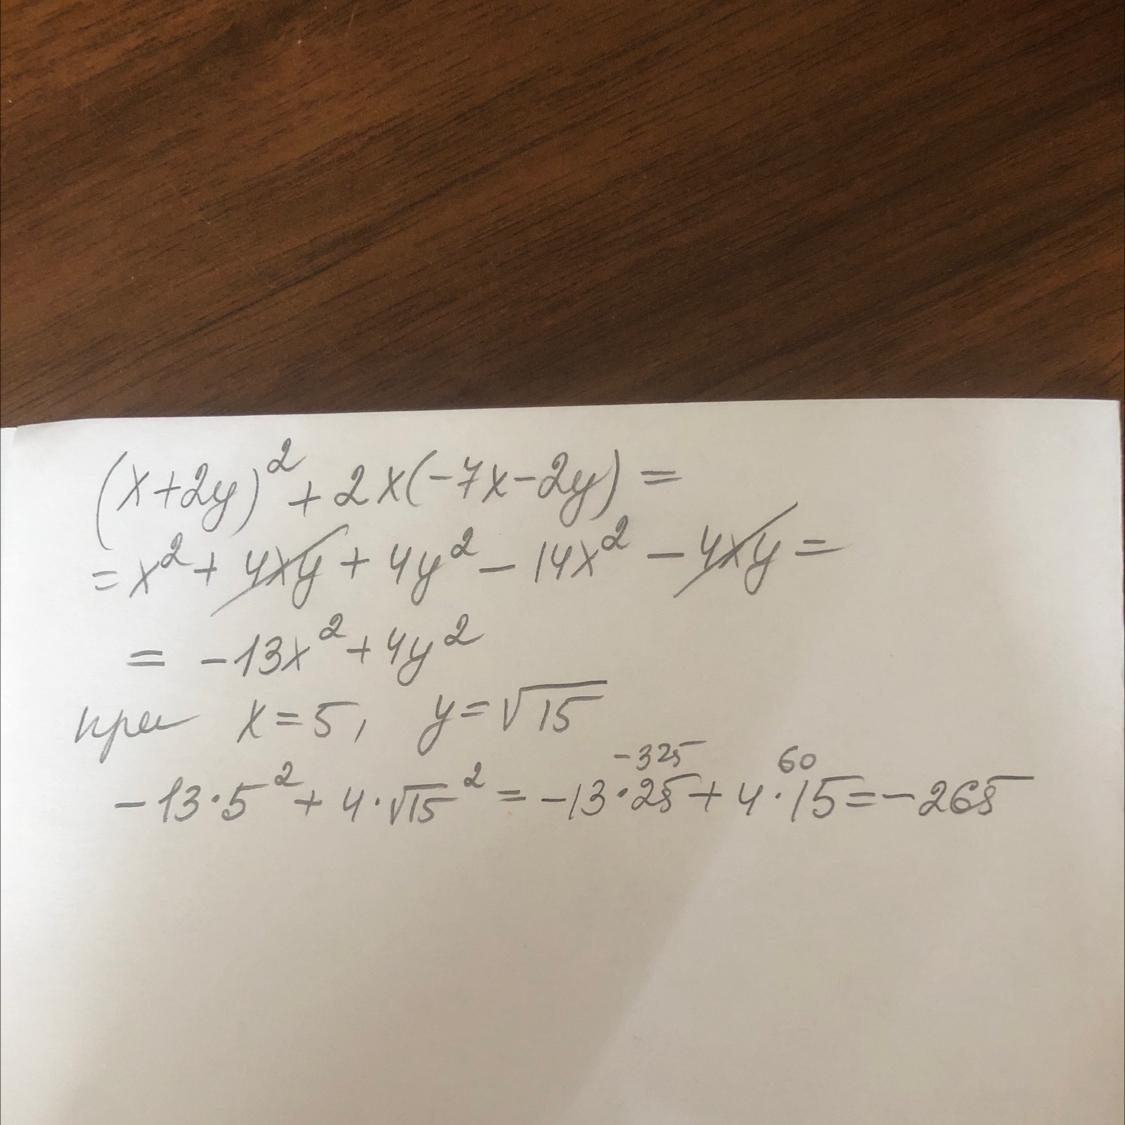 (x+2y)²+2x(-7x-2y)=
=x²+4xy+4y²-14x²-4xy=
=-13x²+4y²
при x=5, y=√15
-325 60
-13·5²+4·√15²=-13·25+4·15=-265